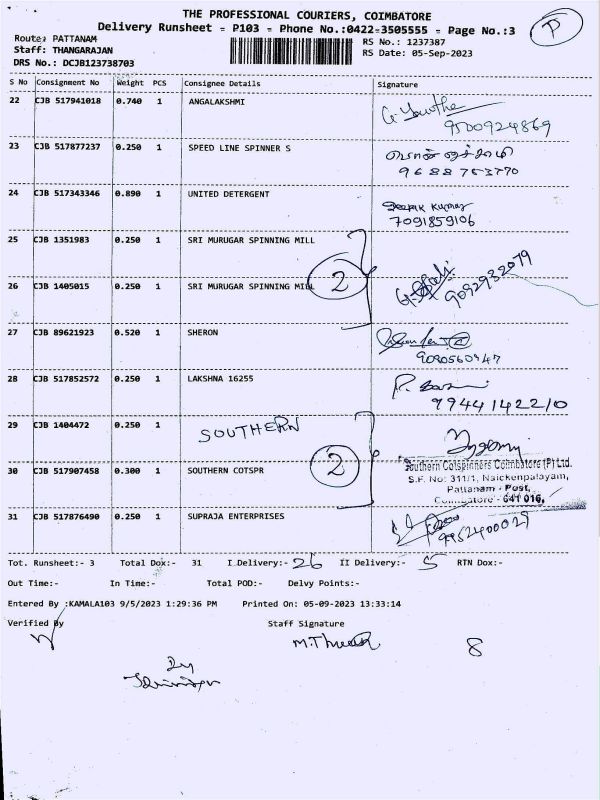 THE PROFESSIONAL COURIERS, COIMBATORE
Delivery Runsheet = P103 = Phone No.:0422-3505555 = Page No.:3
P
Route: PATTANAM
RS No.: 1237387
Staff: THANGARAJAN
RS Date: 05-Sep-2023
DRS No.: DCJB123738703
S No Consignment No Weight PCS Consignee Details Signature
22 CJB 517941018 0.740 1 ANGALAKSHMI
9500924869
23 CJB 517877237 0.250 1 SPEED LINE SPINNER S
9688753770
24 CJB 517343346 0.890 1 UNITED DETERGENT
Deepak Kumar
7091859106
25 CJB 1351983 0.250 1 SRI MURUGAR SPINNING MILL
2
26 CJB 1405015 0.250 1 SRI MURUGAR SPINNING MILL
9092932079
27 CJB 89621923 0.520 1 SHERON
9090560947
28 CJB 517852572 0.250 1 LAKSHNA 16255
9944142210
29 CJB 1404472 0.250 1 SOUTHERN
2
30 CJB 517907458 0.300 1 SOUTHERN COTSPR
Southern Cotspinners Coimbatore (P) Ltd.
S.F. No: 311/1, Naickenpalayam,
Pattanam - Post,
Coimbatore - 641 016.
31 CJB 517876490 0.250 1 SUPRAJA ENTERPRISES
9952400029
Tot. Runsheet:- 3 Total Dox:- 31 I Delivery:- 26 II Delivery:- 5 RTN Dox:-
Out Time:- In Time:- Total POD:- Delvy Points:-
Entered By :KAMALA103 9/5/2023 1:29:36 PM Printed On: 05-09-2023 13:33:14
Verified By Staff Signature
8